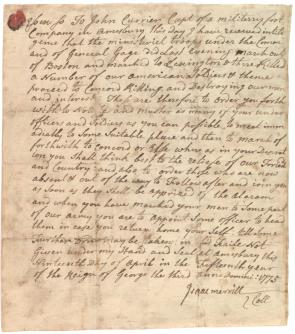 To John Currier Capt of a military foot
Company in Amesbury This day I have received intele
gence that the ministeriel troops under the Comm
and of General Gage did Last evening march out
of Boston and marched to Lexington & there Killed
a Number of our american Soldiers & thence
proceed to Concord Killing and Destroying our men
and interest These are therefore to order you forth
with to and muster as many of your under
officers and Soldiers as you can possible to meet imm
ediatly to some Suitable place and then to march of
forthwith to Concord or Else where as in your Descrat
ion you Shall think best to the reliefe of our Friends
and Country and also to order those who are now
absent & out of the way to Follow after and ioin you
as Soon as they shall be apprised of the Alaram
and when you have marched your men to some part
of our army you are to appoint some officer to head
them in case you return home your Self till Some
Further order may be taken in Faile Not
Given under my Hand and Seal at amesbury this
Ninteenth Day of April in the Fifteenth year
of the Reign of George the third Anno Domini 1775
Isaac merrill
Coll